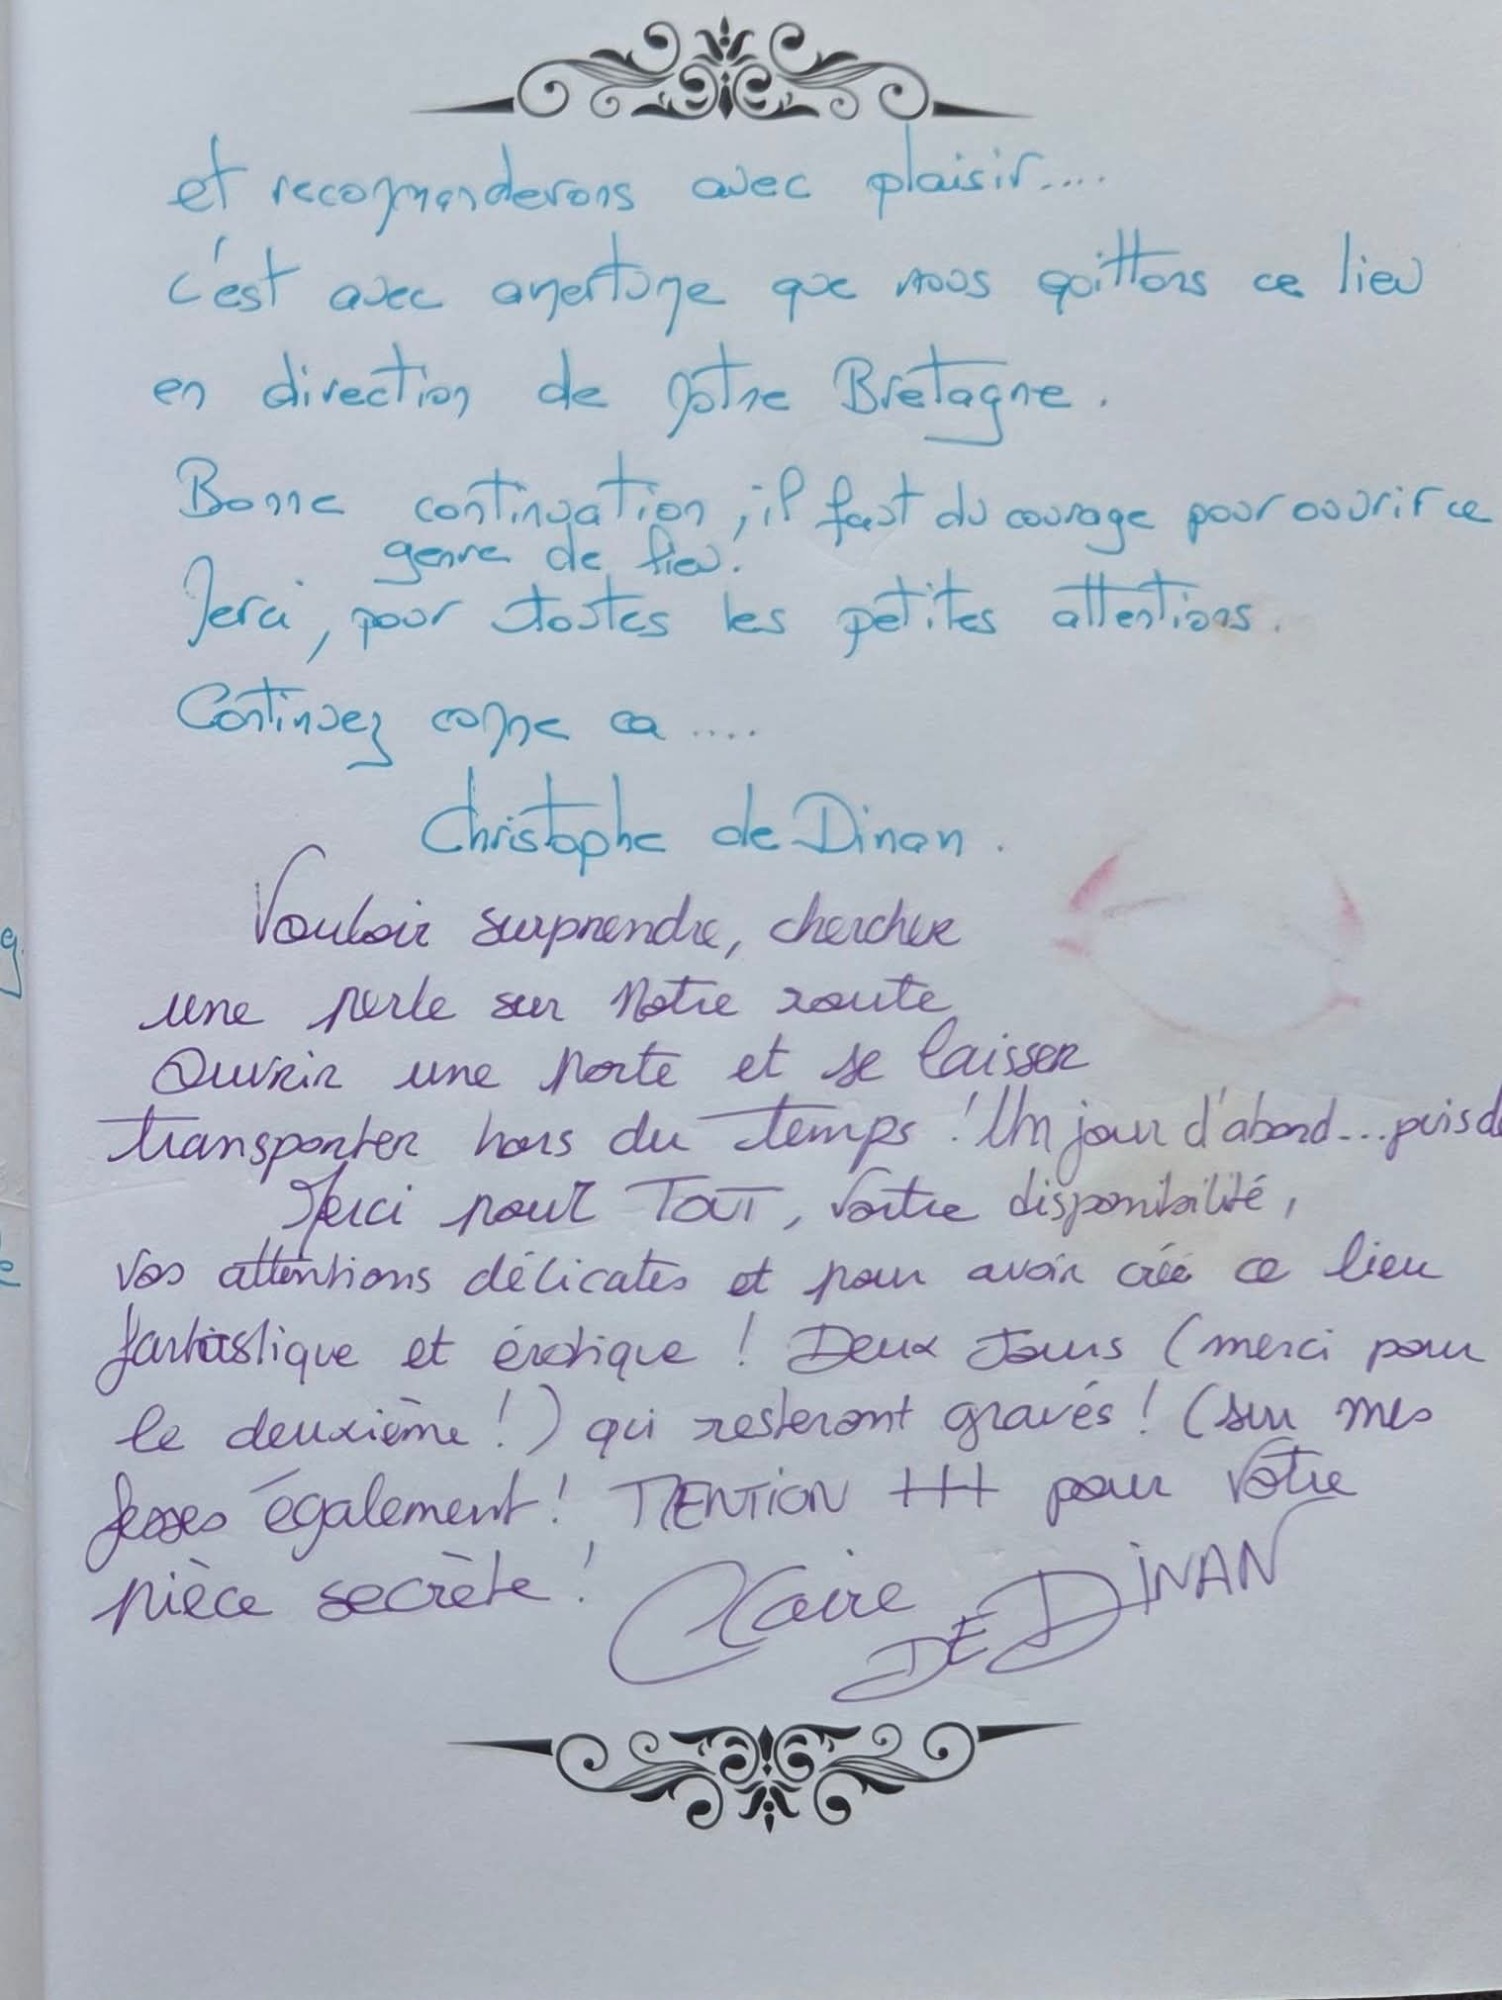 et recommanderons avec plaisir....
c'est avec amertume que nous quittons ce lieu
en direction de notre Bretagne.
Bonne continuation, il faut du courage pour ouvrir ce
genre de lieu.
Merci, pour toutes les petites attentions.
Continuez comme ca ....
Christophe de Dinan.
Vouloir surprendre, chercher
une perle sur Notre route
Ouvrir une porte et se laisser
transporter hors du temps ! Un jour d'abord... puis d
Merci pour TOUT, votre disponibilité,
vos attentions délicates et pour avoir créé ce lieu
fantastique et érotique ! Deux Jours (merci pour
le deuxième !) qui resteront gravés ! (sur mes
fesses également ! MENTION +++ pour votre
pièce secrète ! Claire
DE DINAN